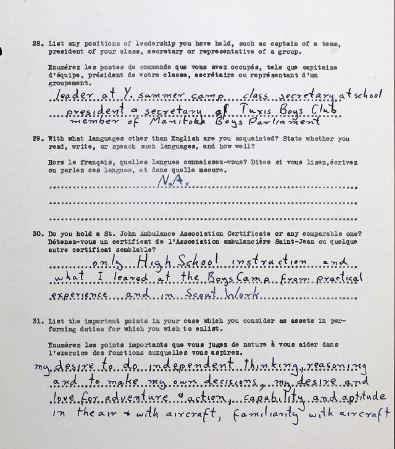 28. List any positions of leadership you have held, such as captain of a team,
president of your class, secretary or representative of a group.
Enumérez les postes de commande que vous avez occupés, tels que capitaine
d'équipe, président de votre classe, secrétaire ou représentant d'un
groupement.
leader at Y. summer camp class secretary at school
president & secretary of Tuxis Boys Club
member of Manitoba Boys Parliament
29. With what languages other than English are you acquainted? State whether you
read, write, or speak such languages, and how well?
Hors le français, quelles langues connaissez-vous? Dites si vous lisez, écrivez
ou parlez ces langues, et dans quelle mesure.
N.A.
30. Do you hold a St. John Ambulance Association Certificate or any comparable one?
Détenez-vous un certificat de l'Association ambulancière Saint-Jean ou quelque
autre certificat semblable?
only High School instruction and
what I leared at the Boys Camp from practical
experience and in Scout Work
31. List the important points in your case which you consider as assets in per-
forming duties for which you wish to enlist.
Enumérez les points importants que vous jugez de nature à vous aider dans
l'exercice des fonctions auxquelles vous aspirez.
my desire to do independent thinking, reasoning
and to make my own decisions, my desire and
love for adventure & action, capability and aptitude
in the air & with aircraft, familiarity with aircraft